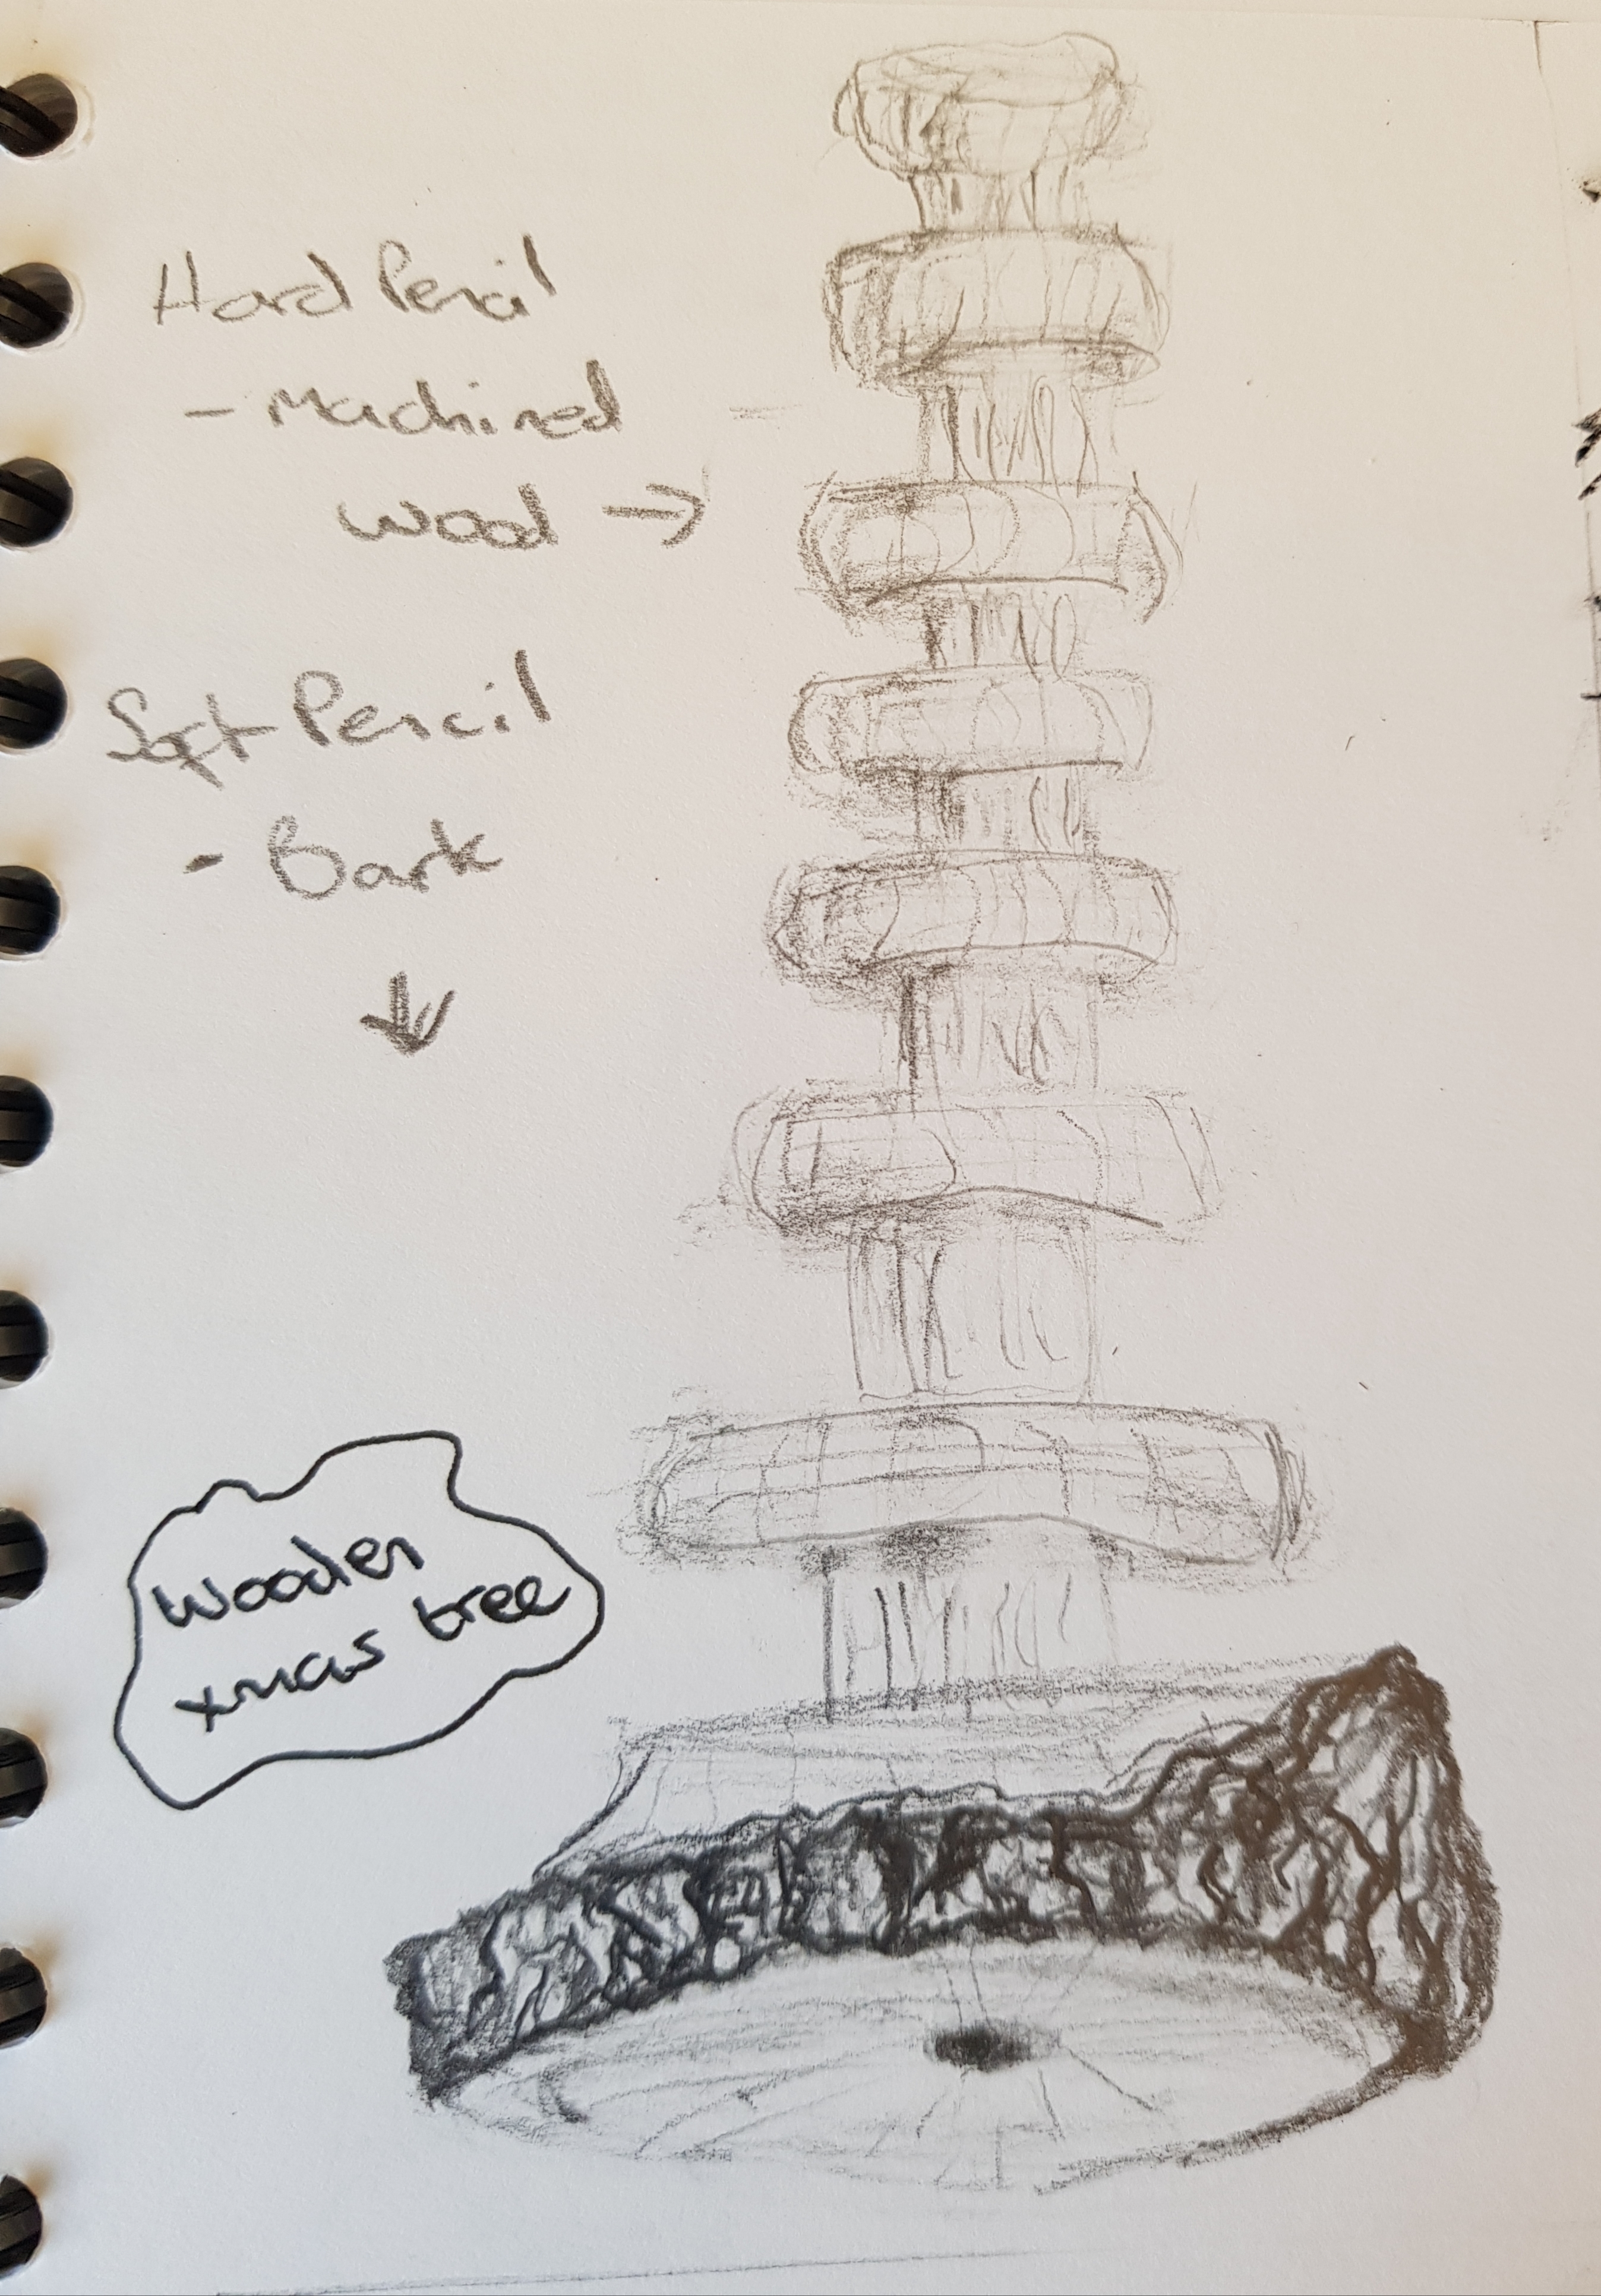 Hard Pencil
- Machined
wood →
Soft Pencil
- Bark
↓
Wooden
xmas tree